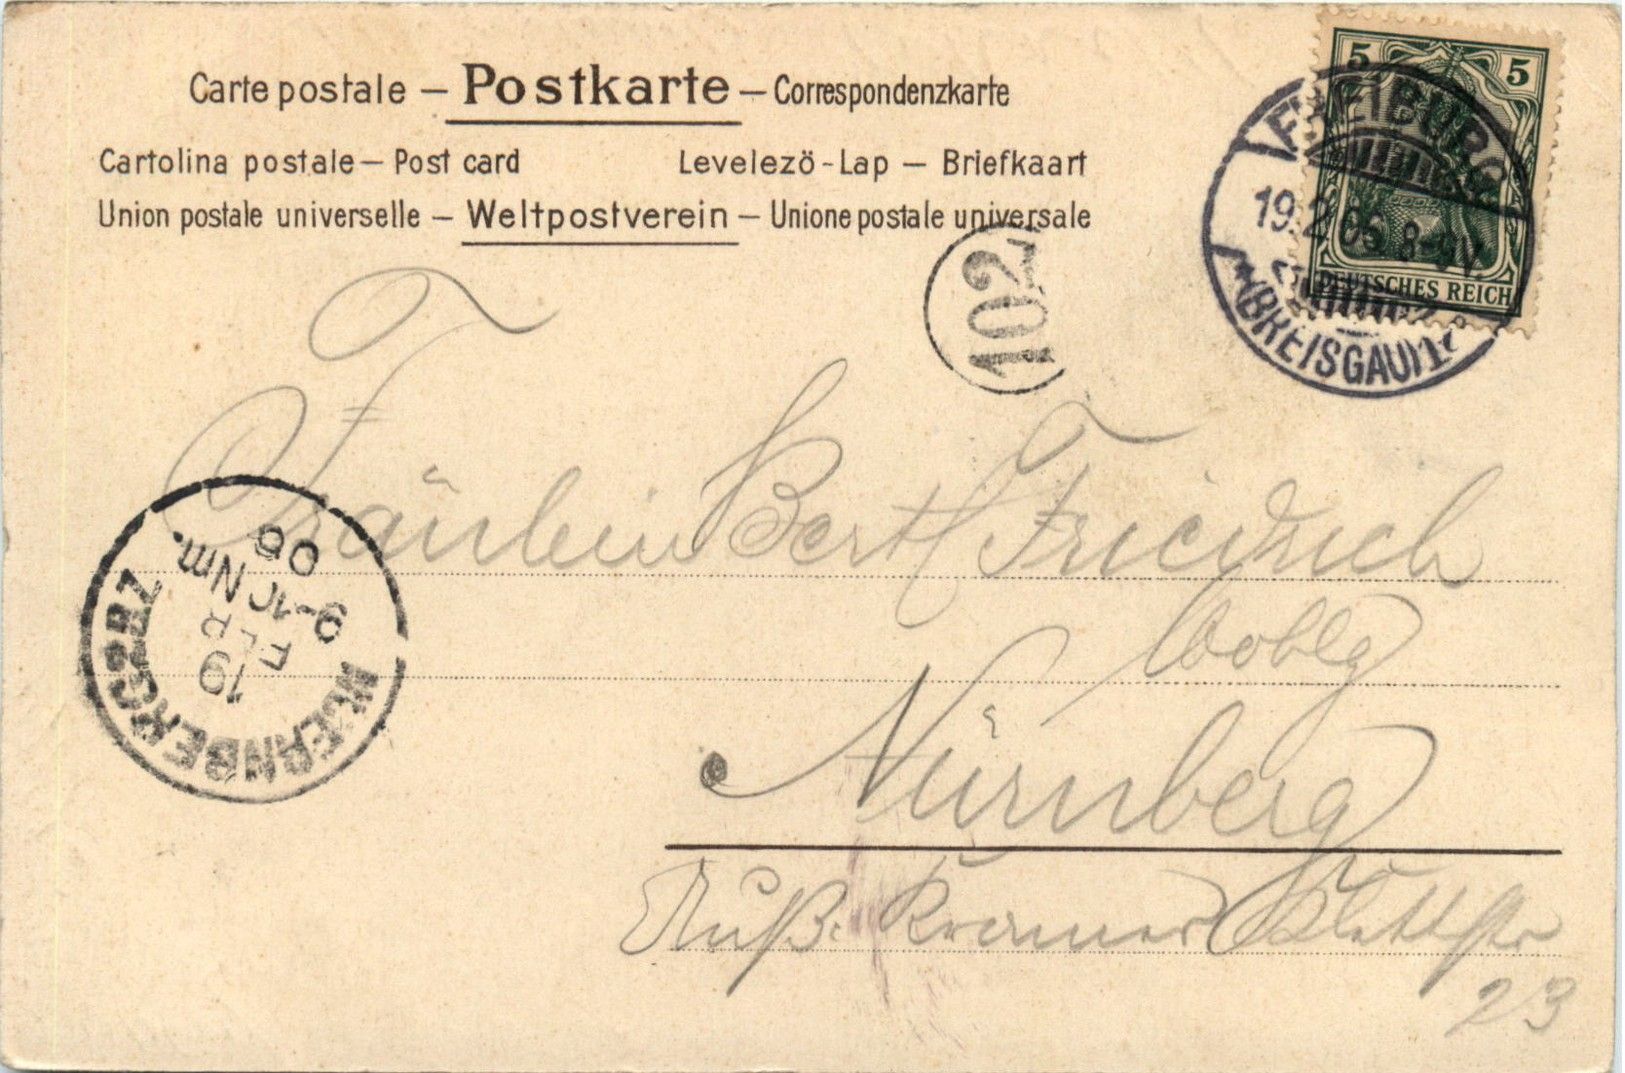 Carte postale – Postkarte – Correspondenzkarte
Cartolina postale – Post card Levelezö-Lap – Briefkaart
Union postale universelle – Weltpostverein – Unione postale universale
5 5
DEUTSCHES REICH
FREIBURG
19.2.06. 8-9V.
(BREISGAU)
102
Fräulein Berth Friedrich
Wohlg
Nürnberg
Äuß. Kramer Klettstr
23
NUERNBERG 2 BZ
19
FEB
9-10 Nm.
06